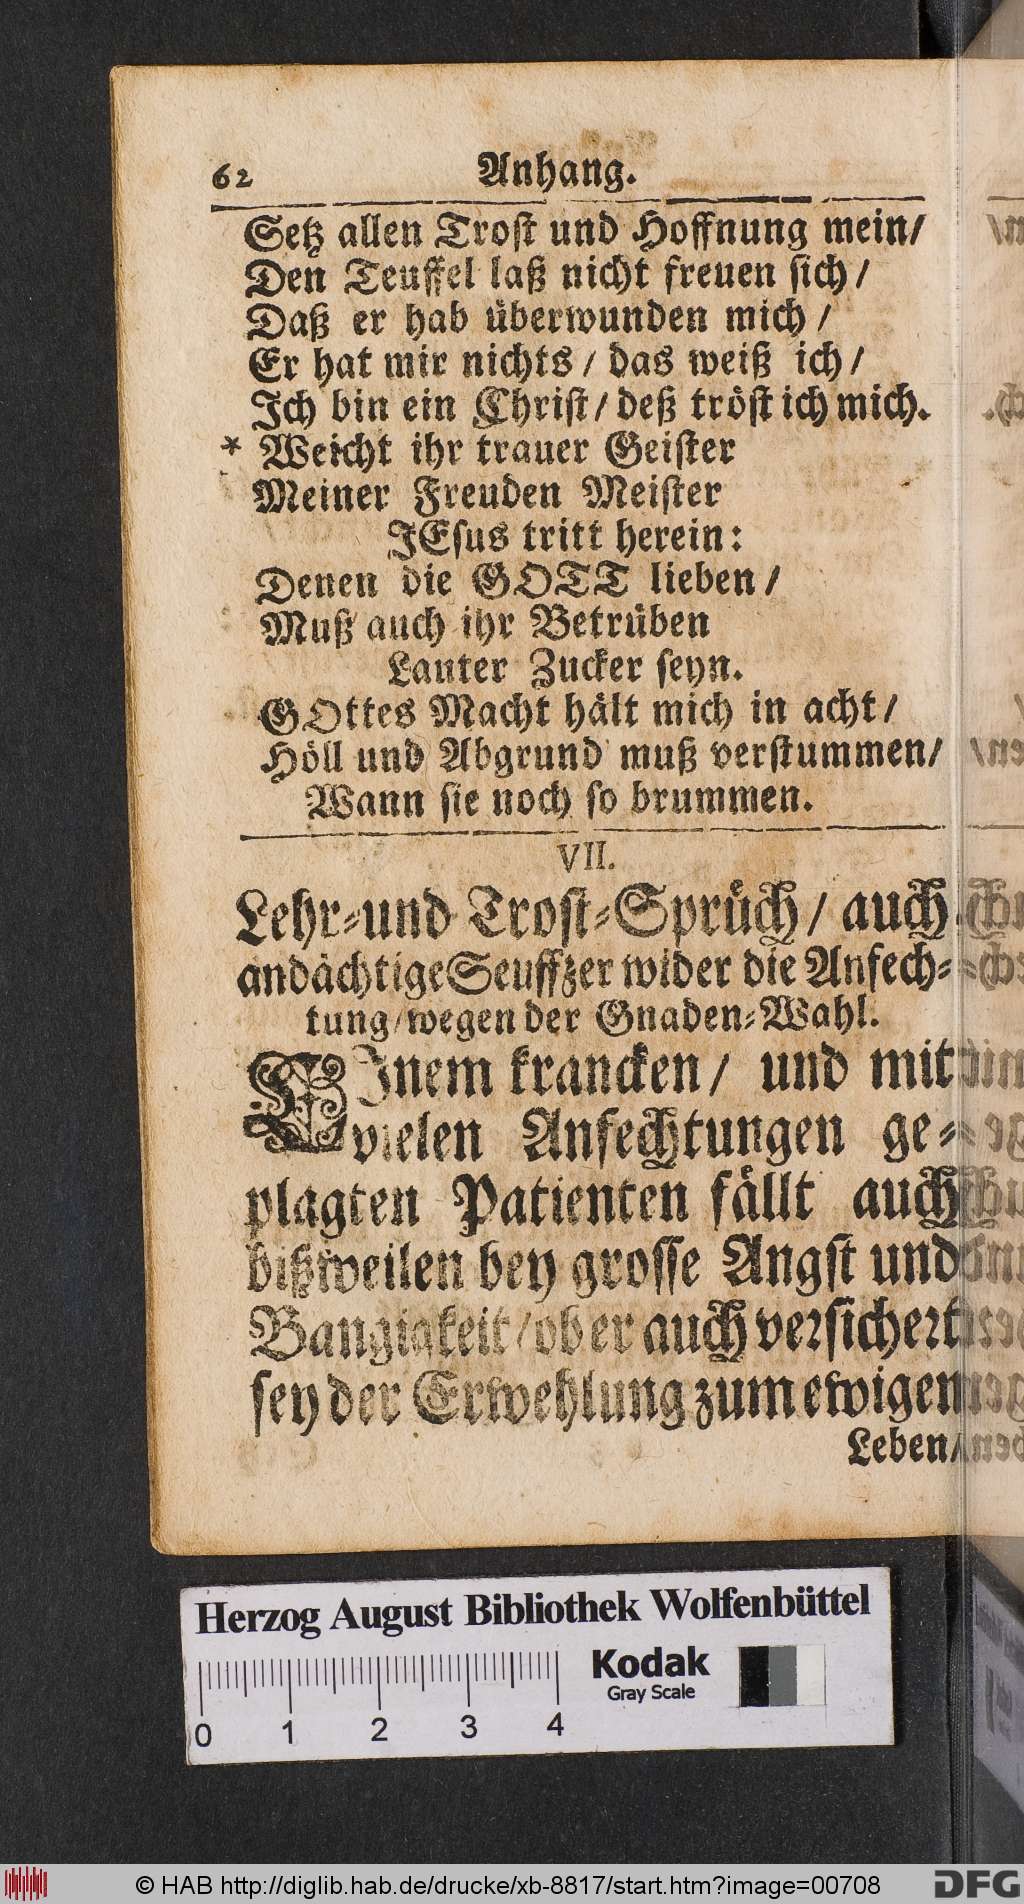 62 Anhang.
Setz allen Trost und Hoffnung mein/
Den Teuffel laß nicht freuen sich/
Daß er hab überwunden mich/
Er hat mir nichts/ das weiß ich/
Ich bin ein Christ/ deß tröst ich mich.
* Weicht ihr trauer Geister
Meiner Freuden Meister
JEsus tritt herein:
Denen die GOTT lieben/
Muß auch ihr Betrüben
Lauter Zucker seyn.
GOttes Macht hält mich in acht/
Höll und Abgrund muß verstummen/
Wann sie noch so brummen.
VII.
Lehr-und Trost-Sprüch/ auch
andächtige Seuffzer wider die Anfech-
tung/wegen der Gnaden-Wahl.
EInem krancken/ und mit
vielen Anfechtungen ge-
plagten Patienten fällt auch
bißweilen bey grosse Angst und
Bangigkeit/ob er auch versichert
sey der Erwehlung zum ewigen
Leben/
Herzog August Bibliothek Wolfenbüttel
Kodak
Gray Scale
0 1 2 3 4
© HAB http://diglib.hab.de/drucke/xb-8817/start.htm?image=00708
DFG